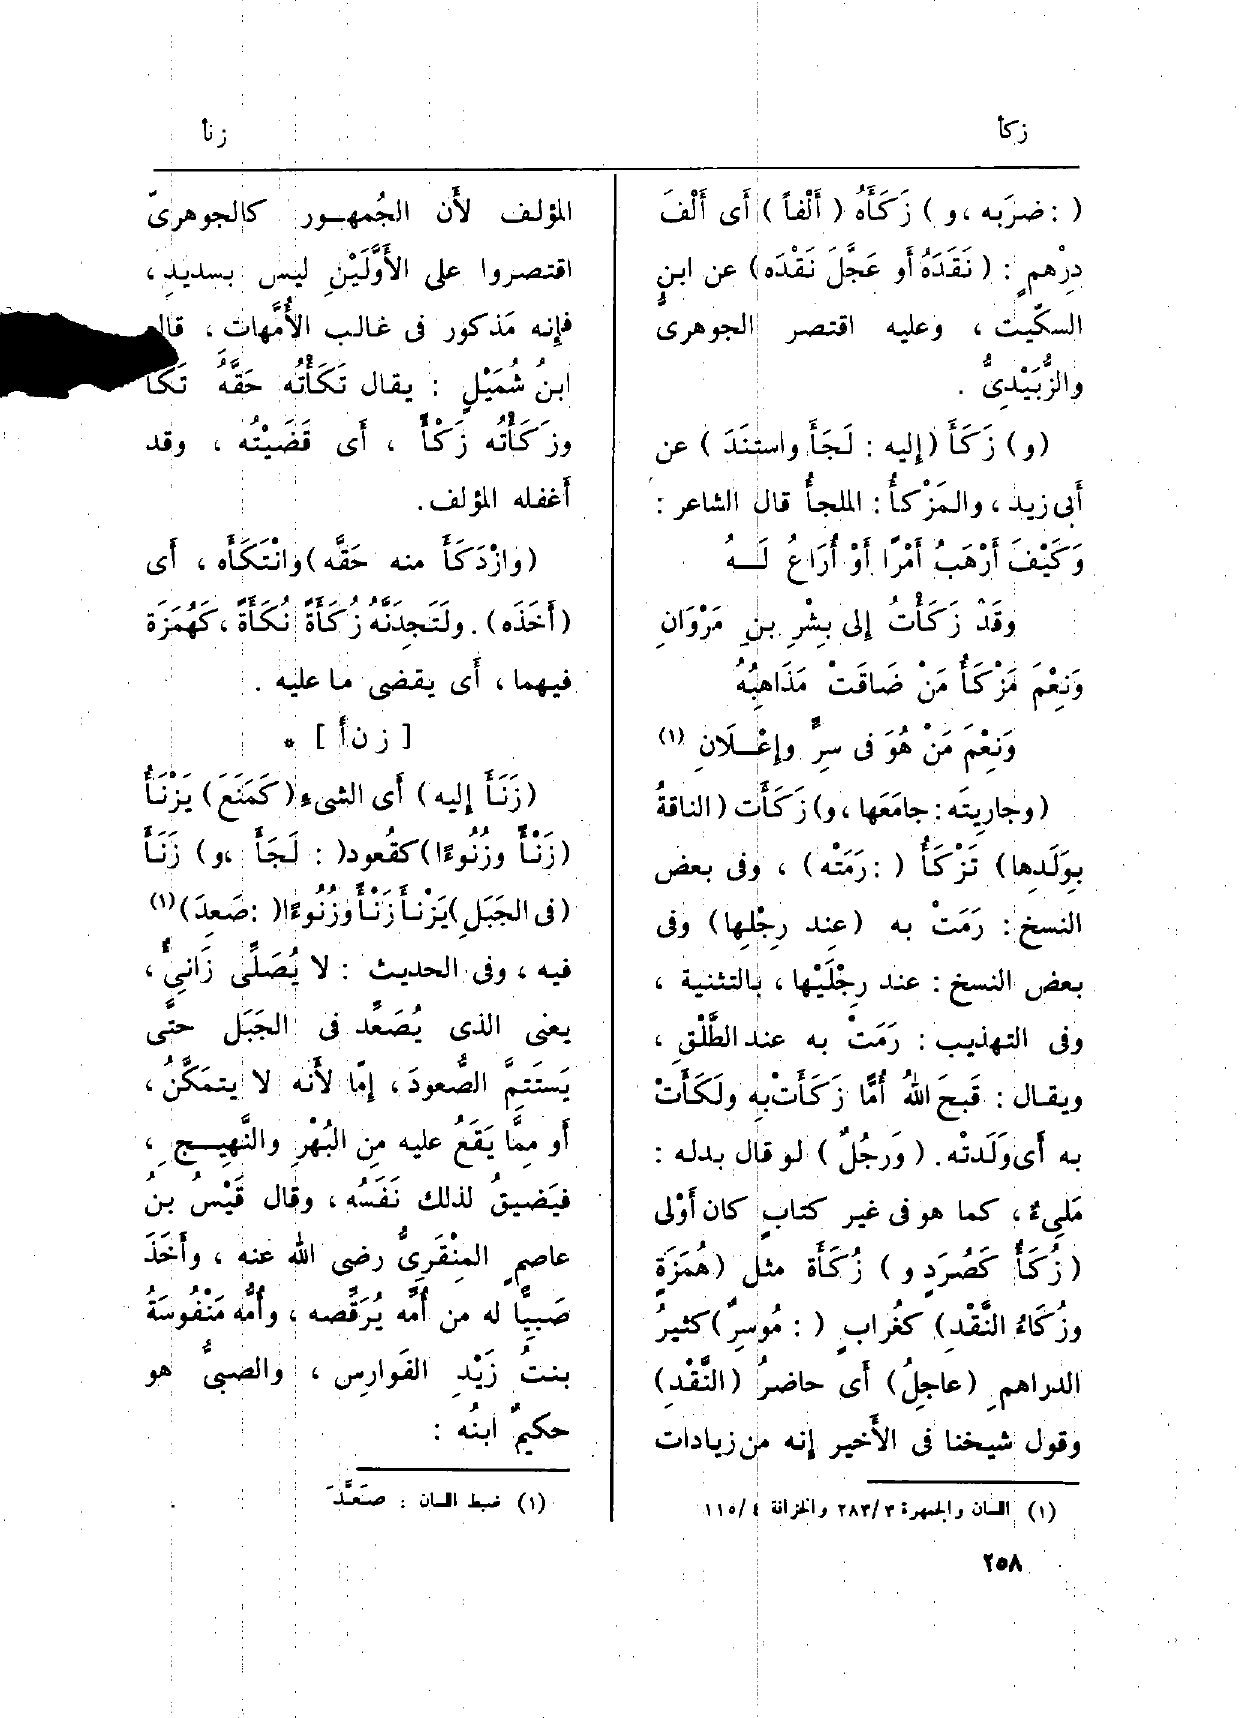 زكأ
زنأ
( : ضرَبه ، و ) زَكَأَهُ ( أَلْفاً ) أَى أَلْفَ
دِرْهمٍ : ( نَقَدَهُ أَو عَجَّلَ نَقْدَه ) عن ابنِ
السكِّيت ، وعليه اقتصر الجوهرىُّ
والزُّبَيْدِىُّ .
( و ) زَكَأَ ( إليه : لَجَأَ واستنَدَ ) عن
أَبى زيد ، والمَزْكأُ : الملجأُ قال الشاعر :
وَكَيْفَ أَرْهَبُ أَمْرًا أَوْ أُرَاعُ لَـــهُ
وقَدْ زَكَأْتُ إلى بِشْرِ بنِ مَرْوَانِ
وَنِعْمَ مَزْكَأُ مَنْ ضَاقَتْ مَذَاهِبُهُ
وَنِعْمَ مَنْ هُوَ فى سِرٍّ وإعْــلَانِ (١)
( وجاريتَه : جامَعَها ، و ) زَكَأَت ( الناقةُ
بِوَلَدِها ) تَزْكَأُ ( : رَمَتْه ) ، وفى بعض
النسخ : رَمَتْ به ( عِند رِجْلِها ) وفى
بعض النسخ : عند رِجْلَيْها ، بالتثنية ،
وفى التهذيب : رَمَتْ به عند الطَّلْقِ ،
ويقـال : قَبحَ اللهُ أُمًّا زَكَأَتْ بِه ولَكَأَتْ
به أَى وَلَدتْه . ( وَرَجُلٌ ) لو قال بدله :
مَلِىءٌ ، كما هو فى غير كتابٍ كان أَوْلى
( زُكَأٌ كَصُرَدٍ و ) زُكَأَة مثل ( هُمَزَةٍ
وزُكَاءُ النَّقْدِ ) كغُرابٍ ( : مُوسِرٌ ) كثيرُ
الدراهمِ ( عاجِلُ ) أَى حاضرُ ( النَّقْدِ )
وقول شيخنا فى الأَخير إنه من زيادات
(١) اللسان والجمهرة ٣/ ٢٨٣ والخزانة ٤ /١١٥
المؤلف لأَن الجُمهـور كالجوهرىّ
اقتصروا على الأَوَّلَيْنِ ليس بسديدٍ ،
فإنه مَذكور فى غالب الأُمَّهات ، قال
ابنُ شُمَيْلٍ : يقال تَكَأْتُه حَقَّهُ تَكأً
وزَكَأْتُه زَكْأً ، أَى قَضَيْتُه ، وقد
أَغفله المؤلف .
( وازْدَكَأَ منه حَقَّه ) وانْتَكَأَه ، أَى
( أَخذَه ) . ولَتَجِدَنَّهُ زُكَأَةً نُكَأَةً ، كَهُمَزَة
فيهما ، أَى يقضى ما عليه .
[ ز ن أ ] *
( زَنَأَ إليه ) أَى الشىءِ ( كَمَنَعَ ) يَزْنَأُ
( زَنْأً وزُنُوءًا ) كقُعود ( : لَجَأَ ، و ) زَنَأَ
( فى الجَبَلِ ) يَزْنأَ زَنْأً وزُنُوءًا ( : صَعِدَ ) (١)
فيه ، وفى الحديث : لا يُصَلِّى زَانِىءٌ ،
يعنى الذى يُصَعِّد فى الجَبَل حتَّى
يَستَتِمَّ الصُّعودَ ، إمّا لأَنه لا يتمَكَّنُ ،
أَو مِمَّا يَقَعُ عليه مِن البُهْرِ والنَّهِيـجِ ،
فيَضيقُ لذلك نَفَسُه ، وقال قَيْسُ بنُ
عاصمٍ المِنْقَرِىُّ رضى الله عنه ، وأَخَذَ
صَبِيًّا له من أُمِّه يُرَقِّصه ، وأُمُّه مَنْفُوسَةُ
بنتُ زَيْدِ الفَوارِس ، والصبىُّ هو
حكيمٌ ابنُه :
(١) ضبط اللسان : صَعَّدَ
٢٥٨